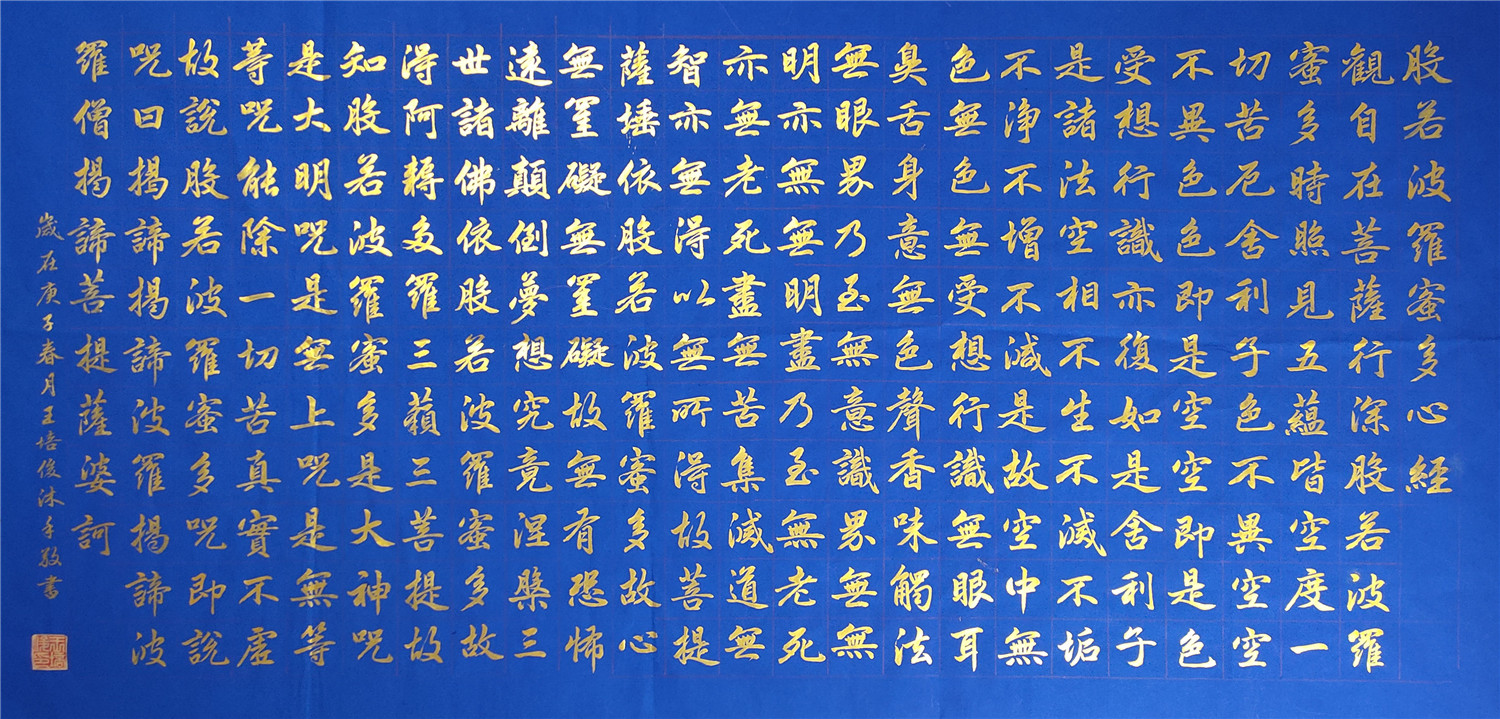 般若波羅蜜多心經
觀自在菩薩行深般若波羅
蜜多時照見五蘊皆空度一
切苦厄舍利子色不異空空
不異色色即是空空即是色
受想行識亦復如是舍利子
是諸法空相不生不滅不垢
不淨不增不減是故空中無
色無色無受想行識無眼耳
鼻舌身意無色聲香味觸法
無眼界乃至無意識界無無
明亦無無明盡乃至無老死
亦無老死盡無苦集滅道無
智亦無得以無所得故菩提
薩埵依般若波羅蜜多故心
無罣礙無罣礙故無有恐怖
遠離顛倒夢想究竟涅槃三
世諸佛依般若波羅蜜多故
得阿耨多羅三藐三菩提故
知般若波羅蜜多是大神咒
是大明咒是無上咒是無等
等咒能除一切苦真實不虛
故說般若波羅蜜多咒即說
咒曰揭諦揭諦波羅揭諦波
羅僧揭諦菩提薩婆訶
歲在庚子春月王培俊沐手敬書